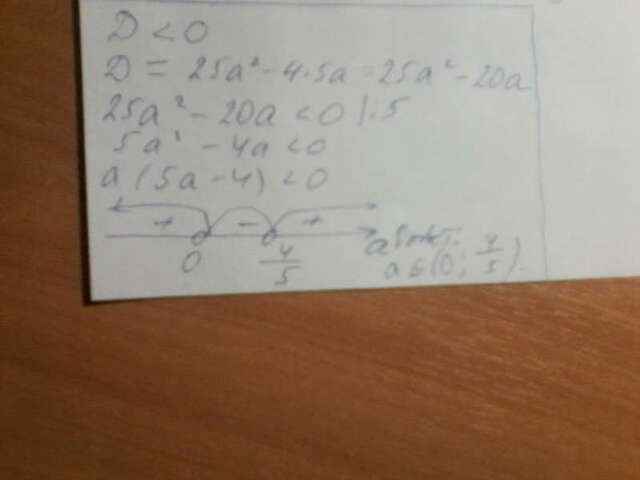 D < 0
D = 25a² - 4·5a = 25a² - 20a
25a² - 20a < 0 |:5
5a² - 4a < 0
a (5a - 4) < 0
+ - +
0 4/5 a
a ∈ (0; 4/5).